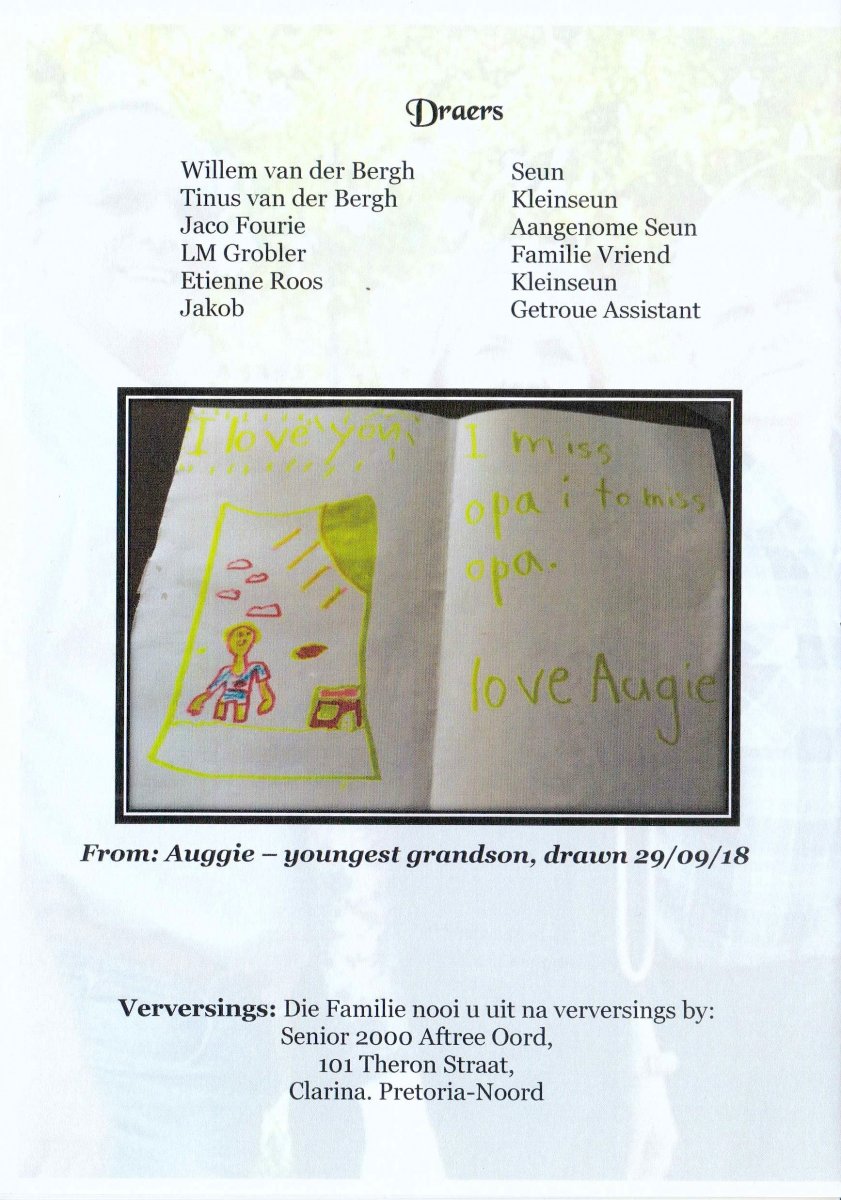 Draers
Willem van der Bergh Seun
Tinus van der Bergh Kleinseun
Jaco Fourie Aangenome Seun
LM Grobler Familie Vriend
Etienne Roos Kleinseun
Jakob Getroue Assistant
I love you
I miss
opa i to miss
opa.
love Augie
From: Auggie – youngest grandson, drawn 29/09/18
Verversings: Die Familie nooi u uit na verversings by:
Senior 2000 Aftree Oord,
101 Theron Straat,
Clarina. Pretoria-Noord